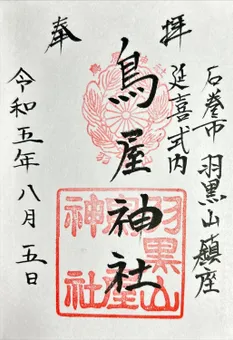 奉拝
石巻市 羽黒山鎮座
延喜式内
鳥屋神社
羽黒山
鳥屋
神社
令和五年八月五日